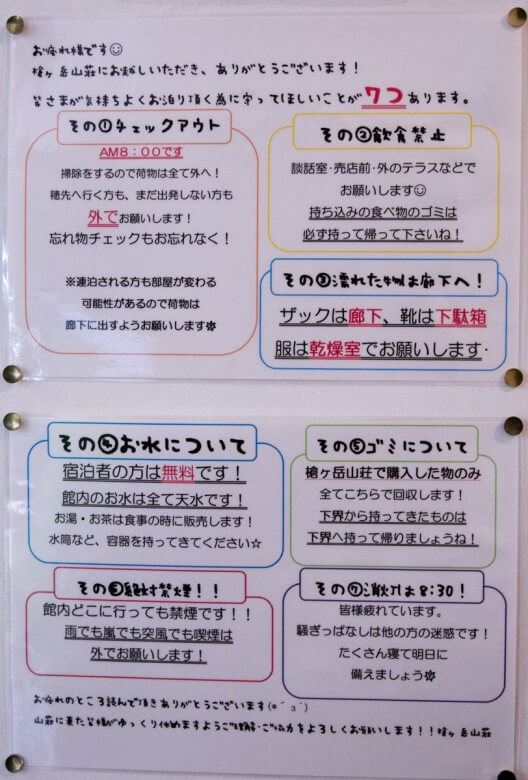 お疲れ様です☺
槍ヶ岳山荘にお越しいただき、ありがとうございます！
皆さまが気持ちよくお泊り頂く為に守ってほしいことが7つあります。
その①チェックアウト
AM8：00です
掃除をするので荷物は全て外へ！
穂先へ行く方も、まだ出発しない方も
外でお願いします！
忘れ物チェックもお忘れなく！
※連泊される方も部屋が変わる
可能性があるので荷物は
廊下に出すようお願いします
その②飲食禁止
談話室・売店前・外のテラスなどで
お願いします☺
持ち込みの食べ物のゴミは
必ず持って帰って下さいね！
その③濡れた物は廊下へ！
ザックは廊下、靴は下駄箱
服は乾燥室でお願いします
その④お水について
宿泊者の方は無料です！
館内のお水は全て天水です！
お湯・お茶は食事の時に販売します！
水筒など、容器を持ってきてください☆
その⑤ゴミについて
槍ヶ岳山荘で購入した物のみ
全てこちらで回収します！
下界から持ってきたものは
下界へ持って帰りましょうね！
禁煙！！
館内どこに行っても禁煙です！！
雨でも嵐でも突風でも喫煙は
外でお願いします！
その⑦消灯は8:30！
皆様疲れています。
騒ぎっぱなしは他の方の迷惑です！
たくさん寝て明日に
備えましょう
お疲れのところ読んで頂きありがとうございます(*´з`)
山荘に来た皆様がゆっくり休めますようご理解・ご協力をよろしくお願いします！！槍ヶ岳山荘